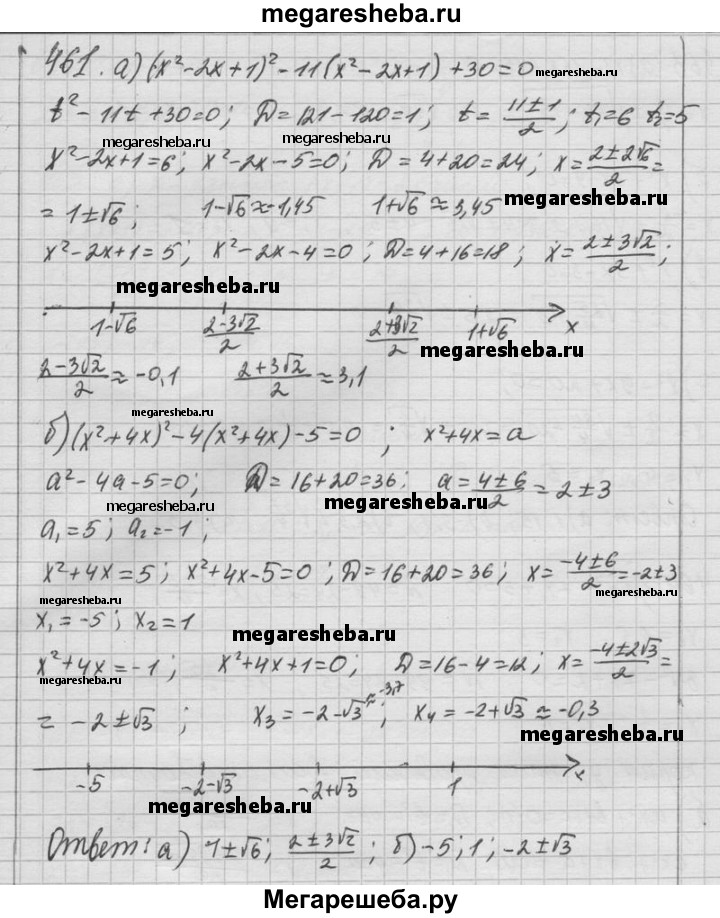 megaresheba.ru
461. а) (x²-2x+1)²-11(x²-2x+1)+30=0 megaresheba.ru
t²-11t+30=0; D=121-120=1; t=(11±1)/2; t₁=6 t₂=5
megaresheba.ru megaresheba.ru
x²-2x+1=6; x²-2x-5=0; D=4+20=24; x=(2±2√6)/2=
megaresheba.ru
=1±√6; 1-√6≈-1,45 1+√6≈3,45
x²-2x+1=5; x²-2x-4=0; D=4+16=18; x=(2±3√2)/2;
megaresheba.ru
1-√6 (2-3√2)/2 (2+3√2)/2 1+√6 x
megaresheba.ru
(2-3√2)/2≈-0,1 (2+3√2)/2≈3,1
megaresheba.ru
б) (x²+4x)²-4(x²+4x)-5=0; x²+4x=a
a²-4a-5=0; D=16+20=36; a=(4±6)/2=2±3
megaresheba.ru
a₁=5; a₂=-1;
x²+4x=5; x²+4x-5=0; D=16+20=36; x=(-4±6)/2=-2±3
megaresheba.ru megaresheba.ru
x₁=-5; x₂=1
megaresheba.ru
x²+4x=-1; x²+4x+1=0; D=16-4=12; x=(-4±2√3)/2=
megaresheba.ru
=-2±√3; x₃=-2-√3≈-3,7; x₄=-2+√3≈-0,3
megaresheba.ru
-5 -2-√3 -2+√3 1 x
megaresheba.ru
Ответ: а) 1±√6; (2±3√2)/2; б) -5; 1; -2±√3
Мегарешеба.ру